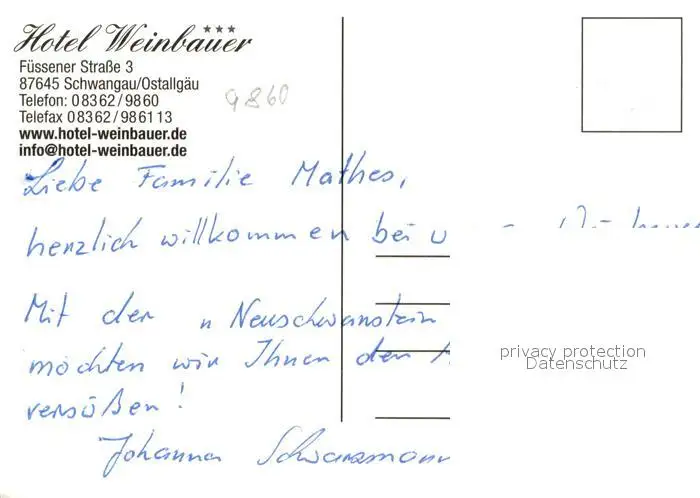 Hotel Weinbauer ***
Füssener Straße 3
87645 Schwangau/Ostallgäu
Telefon: 0 83 62 / 98 60
Telefax 0 83 62 / 98 61 13
www.hotel-weinbauer.de
info@hotel-weinbauer.de
9860
Liebe Familie Mathes,
herzlich willkommen bei u
Mit der „Neuschwanstein
möchten wir Ihnen den
versüßen!
Johanna Schwarzmann
privacy protection
Datenschutz